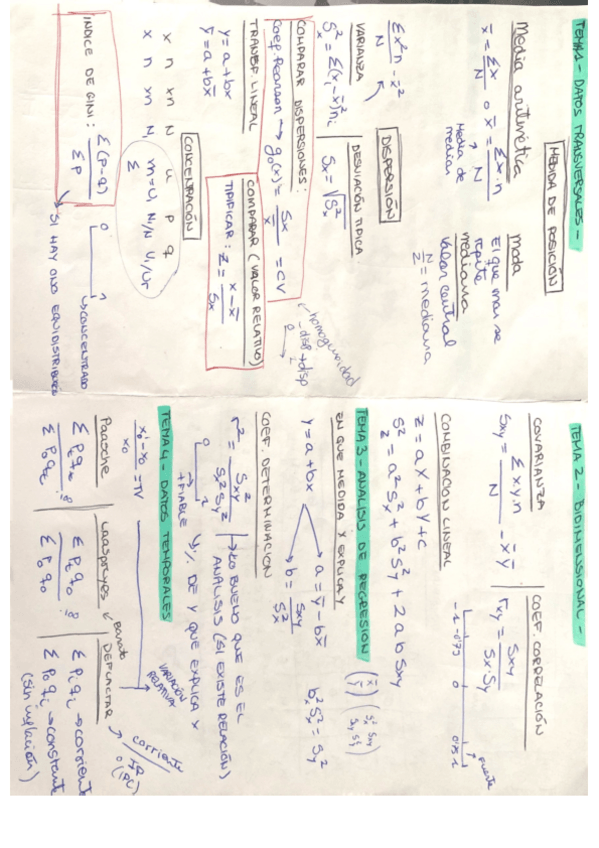 TEMA 1 - DATOS TRANSVERSALES -
MEDIDA DE POSICIÓN
Media aritmética
x̄ = Σx / N o x̄ = Σx·n / N
Media de medias
moda
El que mas se repite
mediana
valor central
N/2 = mediana
DISPERSIÓN
VARIANZA
Σx²n / N - x̄²
S²x = Σ(x-x̄)²ni
DESVIACIÓN TIPICA
Sx = √S²x
COMPARAR DISPERSIONES:
Coef. Pearson → g₀(x) = Sx / x̄ = CV
homogeneidad
-disp +disp
TRANSF. LINEAL
y = a + bx
ȳ = a + bx̄
COMPARAR (VALOR RELATIVO)
TIPIFICAR: Z = x - x̄ / Sx
CONCENTRACIÓN
x n xn N u p q
x n xn N m=u, N/N Ui/Ur
Σ
INDICE DE GINI: Σ(p-q) / Σp
0
→ CONCENTRADO
→ SI HAY O NO EQUIDISTRIBUCIÓN
TEMA 2 - BIDIMENSIONAL -
COVARIANZA
Sxy = Σxyn / N - x̄ȳ
COEF. CORRELACIÓN
rxy = Sxy / Sx·Sy
-1 -0'75 0 0'75 1
fuerte
COMBINACION LINEAL
Z = aX + bY + C
S²z = a²S²x + b²S²y + 2abSxy
TEMA 3 - ANALISIS DE REGRESION
EN QUE MEDIDA X EXPLICA Y
y = a + bx
a = ȳ - bx̄
b = Sxy / S²x
b²S²x = Sy²
COEF. DETERMINACION
r² = S²xy / S²x S²y
→ LO BUENO QUE ES EL ANALISIS (SI EXISTE RELACIÓN)
0
+FIABLE
→ % DE Y QUE EXPLICA X
TEMA 4 - DATOS TEMPORALES
x₁ - x₀ / x₀ = TV
→ VARIACIÓN RELATIVA
Paasche
Σ Pt qt / Σ P₀ qt
Laaspreyes
Σ Pt q₀ / Σ P₀ q₀
DEFLACTAR
corriente / IP o (IPC)
Σ Pi qi → corriente
Σ P₀ qi → constante
(sin inflación)